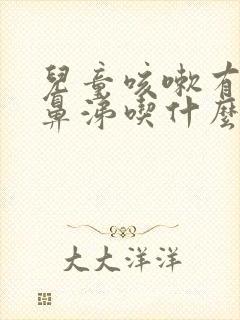 兒童咳嗽有
鼻涕喫什麼
大大洋洋